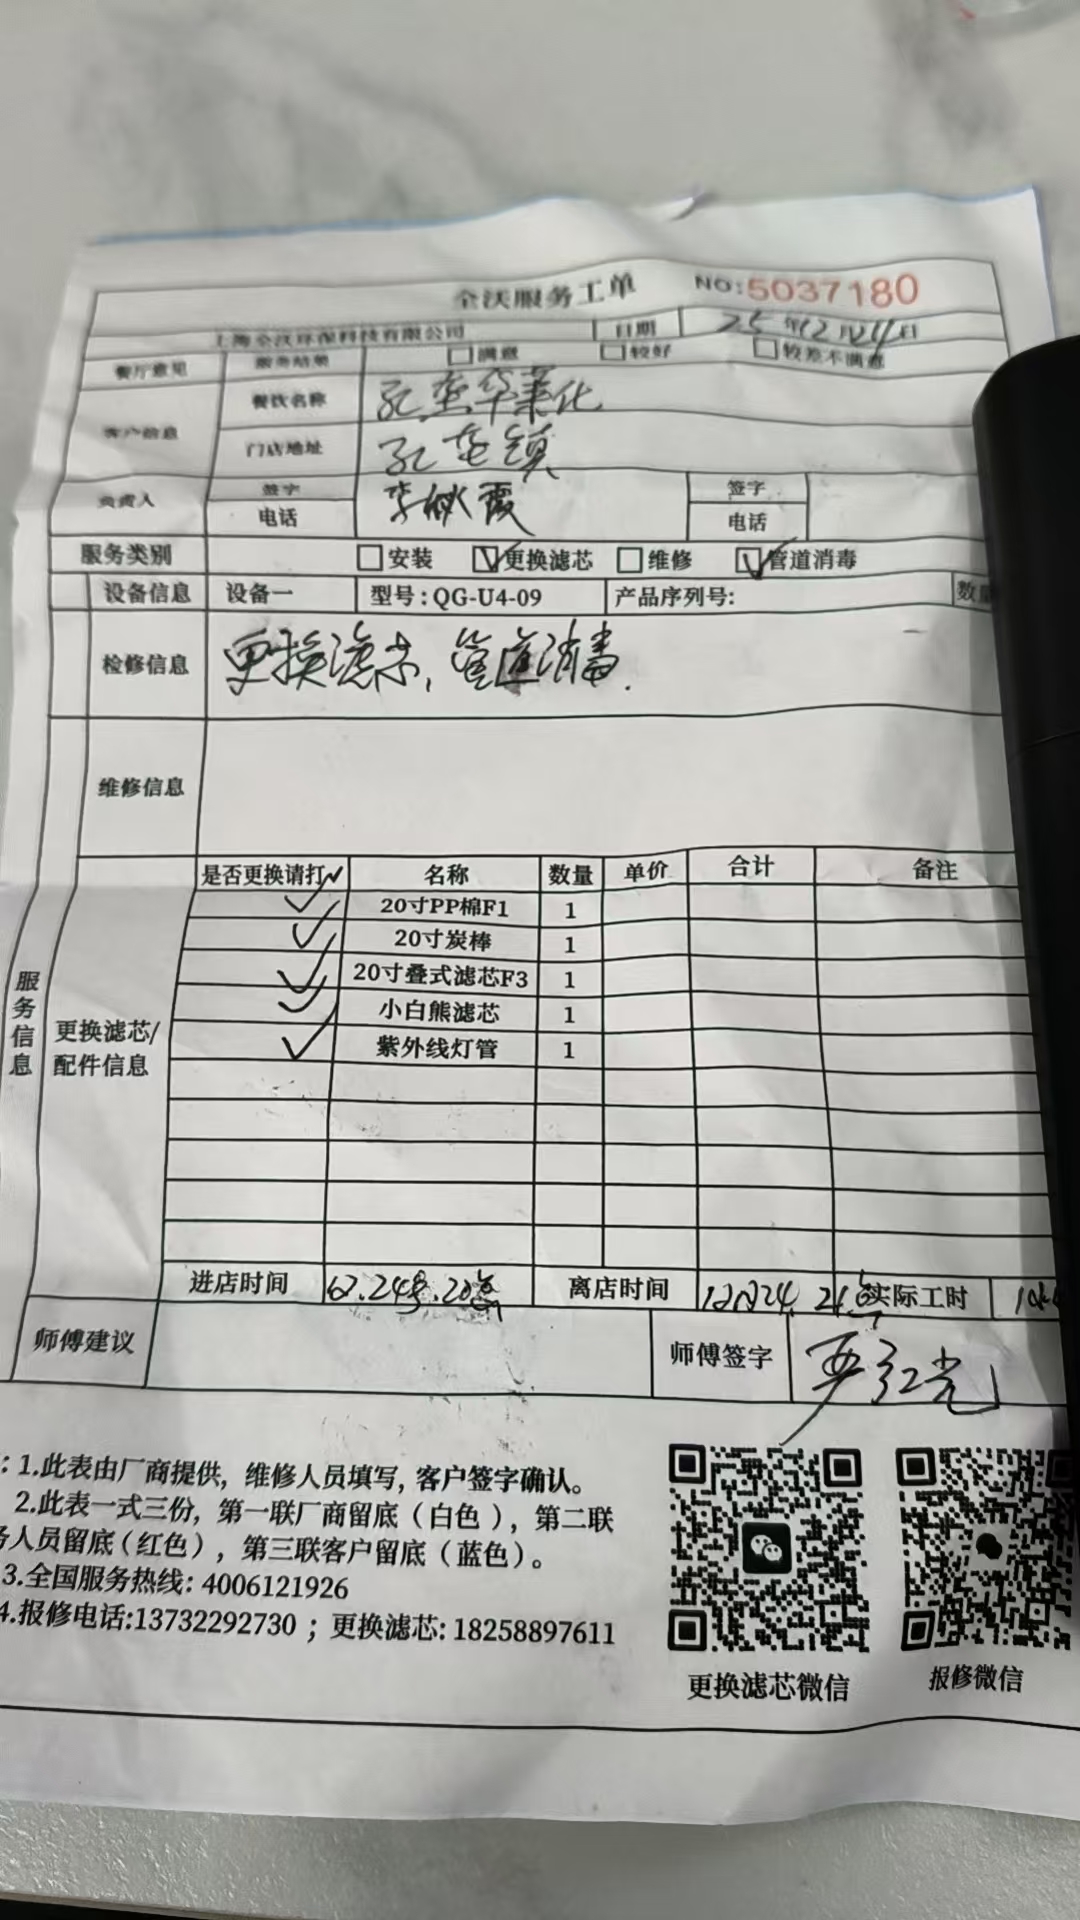 全沃服务工单 NO:5037180
上海全沃环保科技有限公司 日期 25年12月24日
餐厅意见 服务结果 满意 较好 较差不满意
客户信息 餐饮名称 孔垄华莱
门店地址 孔垄镇
负责人 签字 李 霞 签字
电话 电话
服务类别 安装 更换滤芯 维修 管道消毒
设备信息 设备一 型号:QG-U4-09 产品序列号: 数
检修信息 更换滤芯,管道消毒.
维修信息
服务信息
更换滤芯/
配件信息
是否更换请打✓ 名称 数量 单价 合计 备注
✓ 20寸PP棉F1 1
✓ 20寸炭棒 1
✓ 20寸叠式滤芯F3 1
✓ 小白熊滤芯 1
✓ 紫外线灯管 1
进店时间 12.24号.20点 离店时间 12月24. 21点 实际工时
师傅建议 师傅签字 红光
:1.此表由厂商提供,维修人员填写,客户签字确认。
2.此表一式三份,第一联厂商留底(白色),第二联
务人员留底(红色),第三联客户留底(蓝色)。
3.全国服务热线:4006121926
4.报修电话:13732292730;更换滤芯:18258897611
更换滤芯微信 报修微信